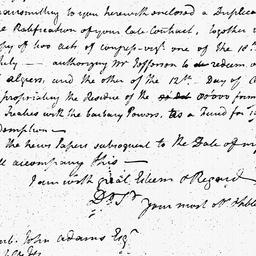 transmitting to you herewith enclosed a Duplica
Ratification of your late Contract, together
py of two acts of Congress viz. one of the 18th
July — authorizing Mr Jefferson to redeem
algiers, and the other of the 12th. Day of
propriating the Residue of the 00'000 form
Treaties with the barbary Powers. as a Fund for
demption —
The News Papers subsequent to the Date of my
accompany this —
I am with great Esteem & Regard
Dr. Sr
Your most ob
John Adams Esqr